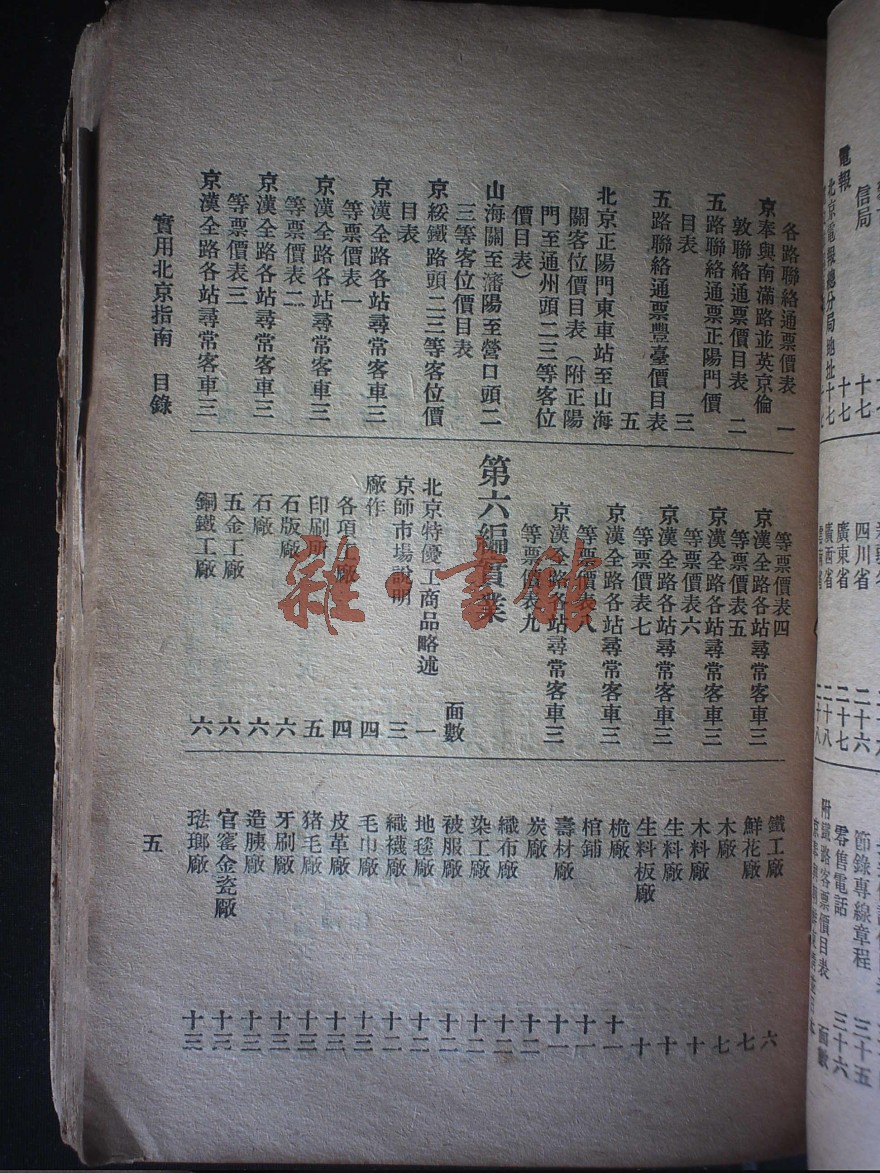 信局 十七
電報
北京電報總分局地址 十七
四川省 二十六
廣東省 二十七
廣西省 二十八
節錄專線章程 三十五
零售電話 三十六
附鐵路客票價目表 面數
各路聯絡通票價表 一
京奉與南滿路並英京倫
敦聯絡通票價目表 二
五路聯絡通票正陽門價
目表 三
五路聯絡通票豐臺價目表
五
北京正陽門東車站至山海
關客位價目表（附正陽
門至通州頭二三等客位
價目表）
山海關至瀋陽至營口頭二
三等客位價目表
京綏鐵路頭二三等客位價
目表
京漢全路各站尋常客車三
等票價表一
京漢全路各站尋常客車三
等票價表二
京漢全路各站尋常客車三
等票價表三
京漢全路各站尋常客車三
等票價表四
京漢全路各站尋常客車三
等票價表五
京漢全路各站尋常客車三
等票價表六
京漢全路各站尋常客車三
等票價表七
京漢全路各站尋常客車三
等票價表八
京漢全路各站尋常客車三
等票價表九
第六編實業
面數
北京特優工商品略述 一
京師市場說明 三
廠作 四
各項工廠 四
印刷所 五
石版廠 六
石廠 六
五金工廠 六
銅鐵工廠 六
鐵工廠 六
鮮花廠 七
木廠 七
木料廠 十
生料廠 十
生料板廠 十
桅廠 十一
棺鋪 十一
壽材廠 十一
炭廠 十二
織布廠 十二
染工廠 十二
被服廠 十二
地毯廠 十二
織襪廠 十二
毛巾廠 十三
皮革廠 十三
猪毛廠 十三
牙刷廠 十三
造胰廠 十三
官窰金瓷廠 十三
琺瑯廠 十三
實用北京指南 目錄
五
雜·書館